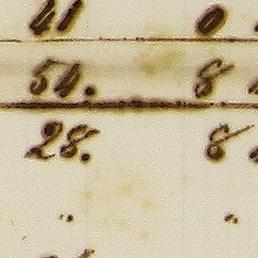 41 0
54. 8
28. 8
" "